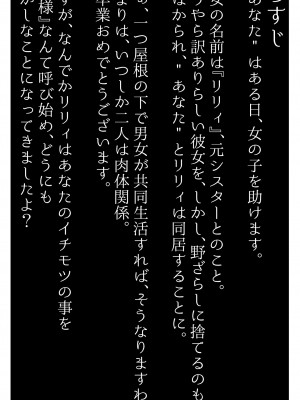 らすじ
あなた"はある日、女の子を助けます。
女の名前は『リリィ』、元シスターとのこと。
うやら訳ありらしい彼女を、しかし、野ざらしに捨てるのも
はばかられ、"あなた"とリリィは同居することに。
あ、一つ屋根の下で男女が共同生活すれば、そうなりますわ
まりは、いつしか二人は肉体関係。
卒業おめでとうございます。
すが、なんでかリリィはあなたのイチモツの事を
様』なんて呼び始め、どうにも
かしなことになってきましたよ？